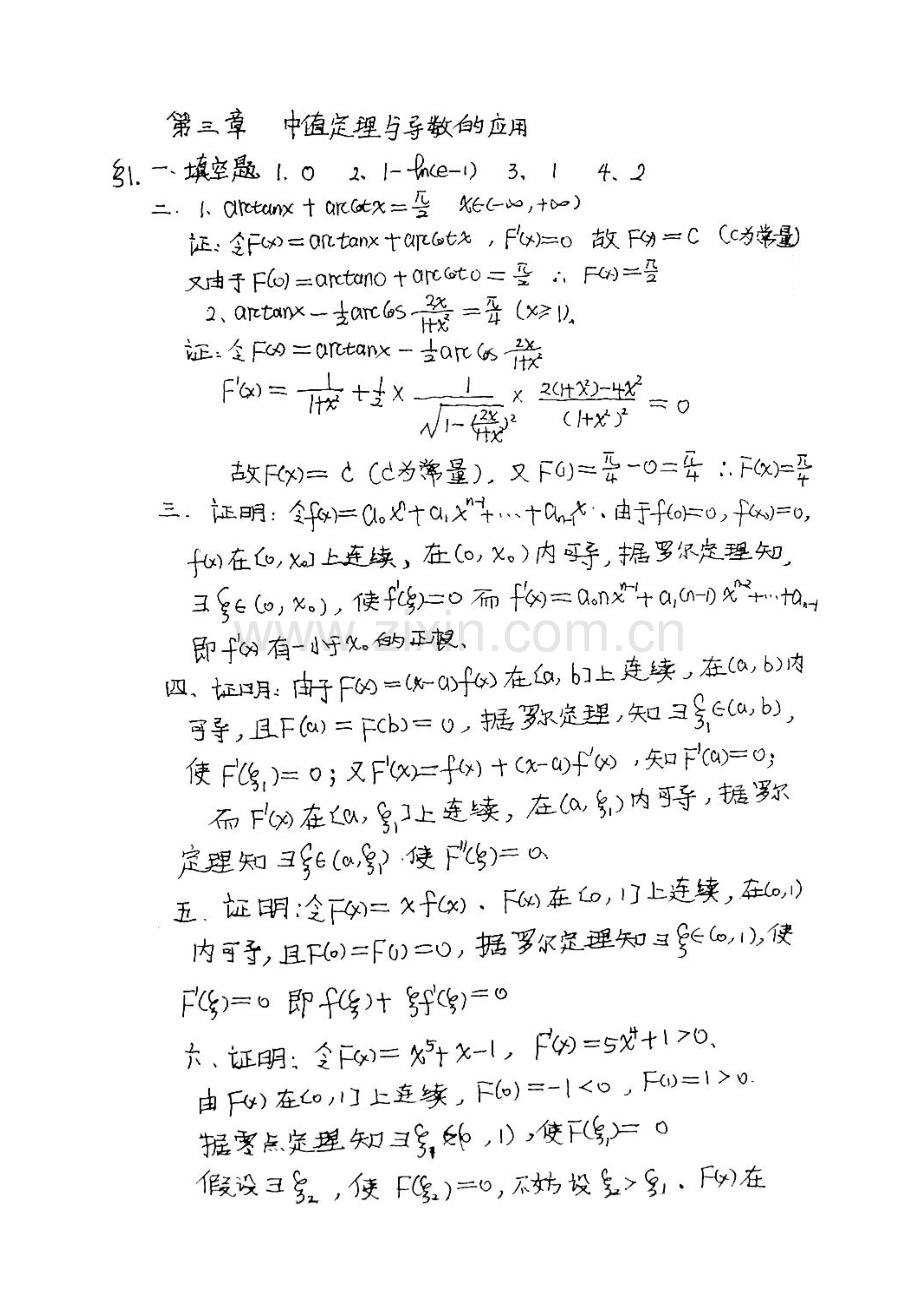 第三章 中值定理与导数的应用
§1. 一、填空题 1. 0 2、1-ln(e-1) 3、1 4、2
二. 1、arctanx + arccotx = π/2 x∈(-∞,+∞)
证:令F(x)=arctanx+arccotx , F'(x)=0 故 F(x)=C (C为常量)
又由于F(0)=arctan0+arccot0=π/2 ∴ F(x)=π/2
2、arctanx - 1/2 arccos 2x/(1+x²) = π/4 (x≥1)、
证:令F(x)=arctanx - 1/2 arccos 2x/(1+x²)
F'(x) = 1/(1+x²) + 1/2 × 1/√(1-(2x/(1+x²))²) × (2(1+x²)-4x²)/(1+x²)² = 0
故F(x)= C (C为常量), 又 F(1)=π/4-0=π/4 ∴F(x)=π/4
三. 证明:令f(x)=a₀xⁿ+a₁xⁿ⁻¹+…+aₙ₋₁x. 由于f(0)=0, f(x₀)=0,
f(x)在[0,x₀]上连续, 在(0,x₀)内可导, 据罗尔定理知,
∃ξ∈(0,x₀), 使f'(ξ)=0 而 f'(x)=a₀nxⁿ⁻¹+a₁(n-1)xⁿ⁻²+…+aₙ₋₁
即f'(x)有一小于x₀的正根、
www.zixin.com.cn
四、证明:由于F(x)=(x-a)f(x)在[a,b]上连续, 在(a,b)内
可导, 且F(a)=F(b)=0, 据罗尔定理, 知∃ξ₁∈(a,b),
使F'(ξ₁)=0; 又F'(x)=f(x)+(x-a)f'(x), 知F'(a)=0;
而F'(x)在[a,ξ₁]上连续, 在(a,ξ₁)内可导, 据罗尔
定理知∃ξ∈(a,ξ₁) 使F''(ξ)=0、
五. 证明:令F(x)=xf(x)、F(x)在[0,1]上连续, 在(0,1)
内可导, 且F(0)=F(1)=0, 据罗尔定理知∃ξ∈(0,1), 使
F'(ξ)=0 即 f(ξ)+ξf'(ξ)=0
六、证明:令F(x)=x⁵+x-1, F'(x)=5x⁴+1>0、
由F(x)在[0,1]上连续, F(0)=-1<0, F(1)=1>0.
据零点定理知∃ξ₁∈(0,1), 使F(ξ₁)=0
假设∃ξ₂, 使F(ξ₂)=0, 不妨设ξ₂>ξ₁、F(x)在